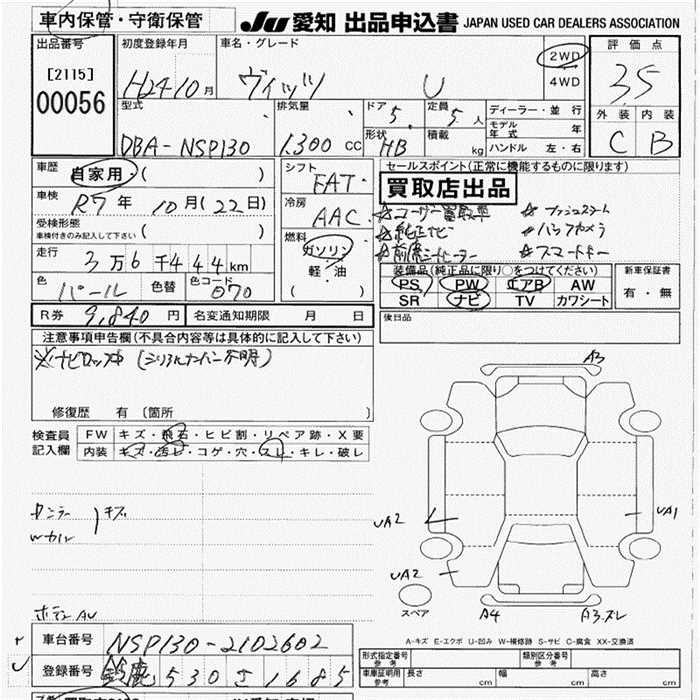 車内保管・守衛保管
JU 愛知 出品申込書 JAPAN USED CAR DEALERS ASSOCIATION
出品番号 [2115] 00056
初度登録年月 H24 10月
車名・グレード ヴィッツ U
2WD
4WD
評価点 3.5
外装 内装
C B
型式 DBA-NSP130
排気量 1.300 cc
ドア 5 定員 5人
形状 HB 積載 kg
ディーラー・並行
モデル年式 年
ハンドル 左・右
車歴 自家用・( )
車検 R7年 10月(22日)
受検形態 ( )
車検付きのみ記入して下さい
走行 3万6千444km
色 パール 色替 色コード 070
R券 9,840円 名変通知期限 月 日
シフト FAT
冷房 AAC
燃料 ガソリン・軽・油
( )
セールスポイント(正常に機能するものに限ります)
買取店出品
☆ユーザー買取車 ☆プッシュスタート
☆純正ナビ ☆バックカメラ
☆前席シートヒーター ☆スマートキー
装備品(純正品に限り○をつけてください)
PS PW エアB AW
SR ナビ TV カワシート
新車保証書
有・無
後日品
注意事項申告欄(不具合内容等は具体的に記入して下さい)
※ナビロック中(シリアルナンバー不明)
修復歴 有〔箇所 〕
検査員記入欄
FW キズ・飛石・ヒビ割・リペア跡・X要
内装 キズ・汚レ・コゲ・穴・スレ・キレ・破レ
キズ
A3
UA2
UA1
UA2
スペア
A4
A3.スレ
A-キズ E-エクボ U-凹み W-補修跡 S-サビ C-腐食 XX-交換済
車台番号 NSP130-2102602
登録番号 鈴鹿 530 さ 1685
形式指定番号 参考
類別区分番号 参考
車庫証明用 参考 長さ cm 幅 cm 高さ cm